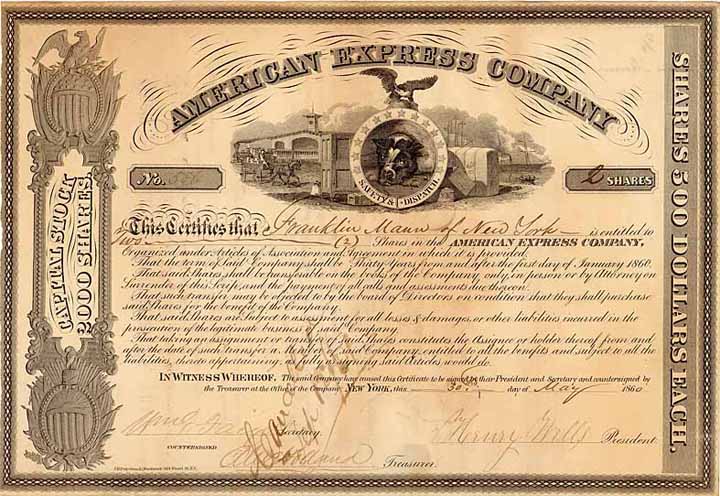 AMERICAN EXPRESS COMPANY
SAFETY & DISPATCH
CAPITAL STOCK
2000 SHARES
SHARES 500 DOLLARS EACH.
No.
2 SHARES
This Certifies that Franklin Mann of New York is entitled to
Two (2) Shares in the AMERICAN EXPRESS COMPANY,
Organized under Articles of Association and Agreement in which it is provided.
That the term of said Company shall be Thirty Years from and after the first day of January 1860.
That said Shares shall be transferable on the books of the Company only in person or by Attorney on
Surrender of this Scrip, and the payment of all calls and assessments due thereon.
That such transfer may be objected to by the board of Directors on condition that they shall purchase
said Shares for the benefit of the Company.
That said Shares are subject to assessment for all losses & damages, or other liabilities incurred in the
prosecution of the legitimate business of said Company.
That taking an assignment or transfer of said Shares constitutes the Assignee or holder thereof from and
after the date of such transfer a Member of said Company, entitled to all the benefits and subject to all the
liabilities, thereto appertaining, as fully as signing said Articles would do.
IN WITNESS WHEREOF. The said Company have caused this Certificate to be signed by their President and Secretary and countersigned
by the Treasurer at the Office of the Company, NEW YORK, this 30 day of May 1860
Secretary.
Henry Wells President.
COUNTERSIGNED
Treasurer.